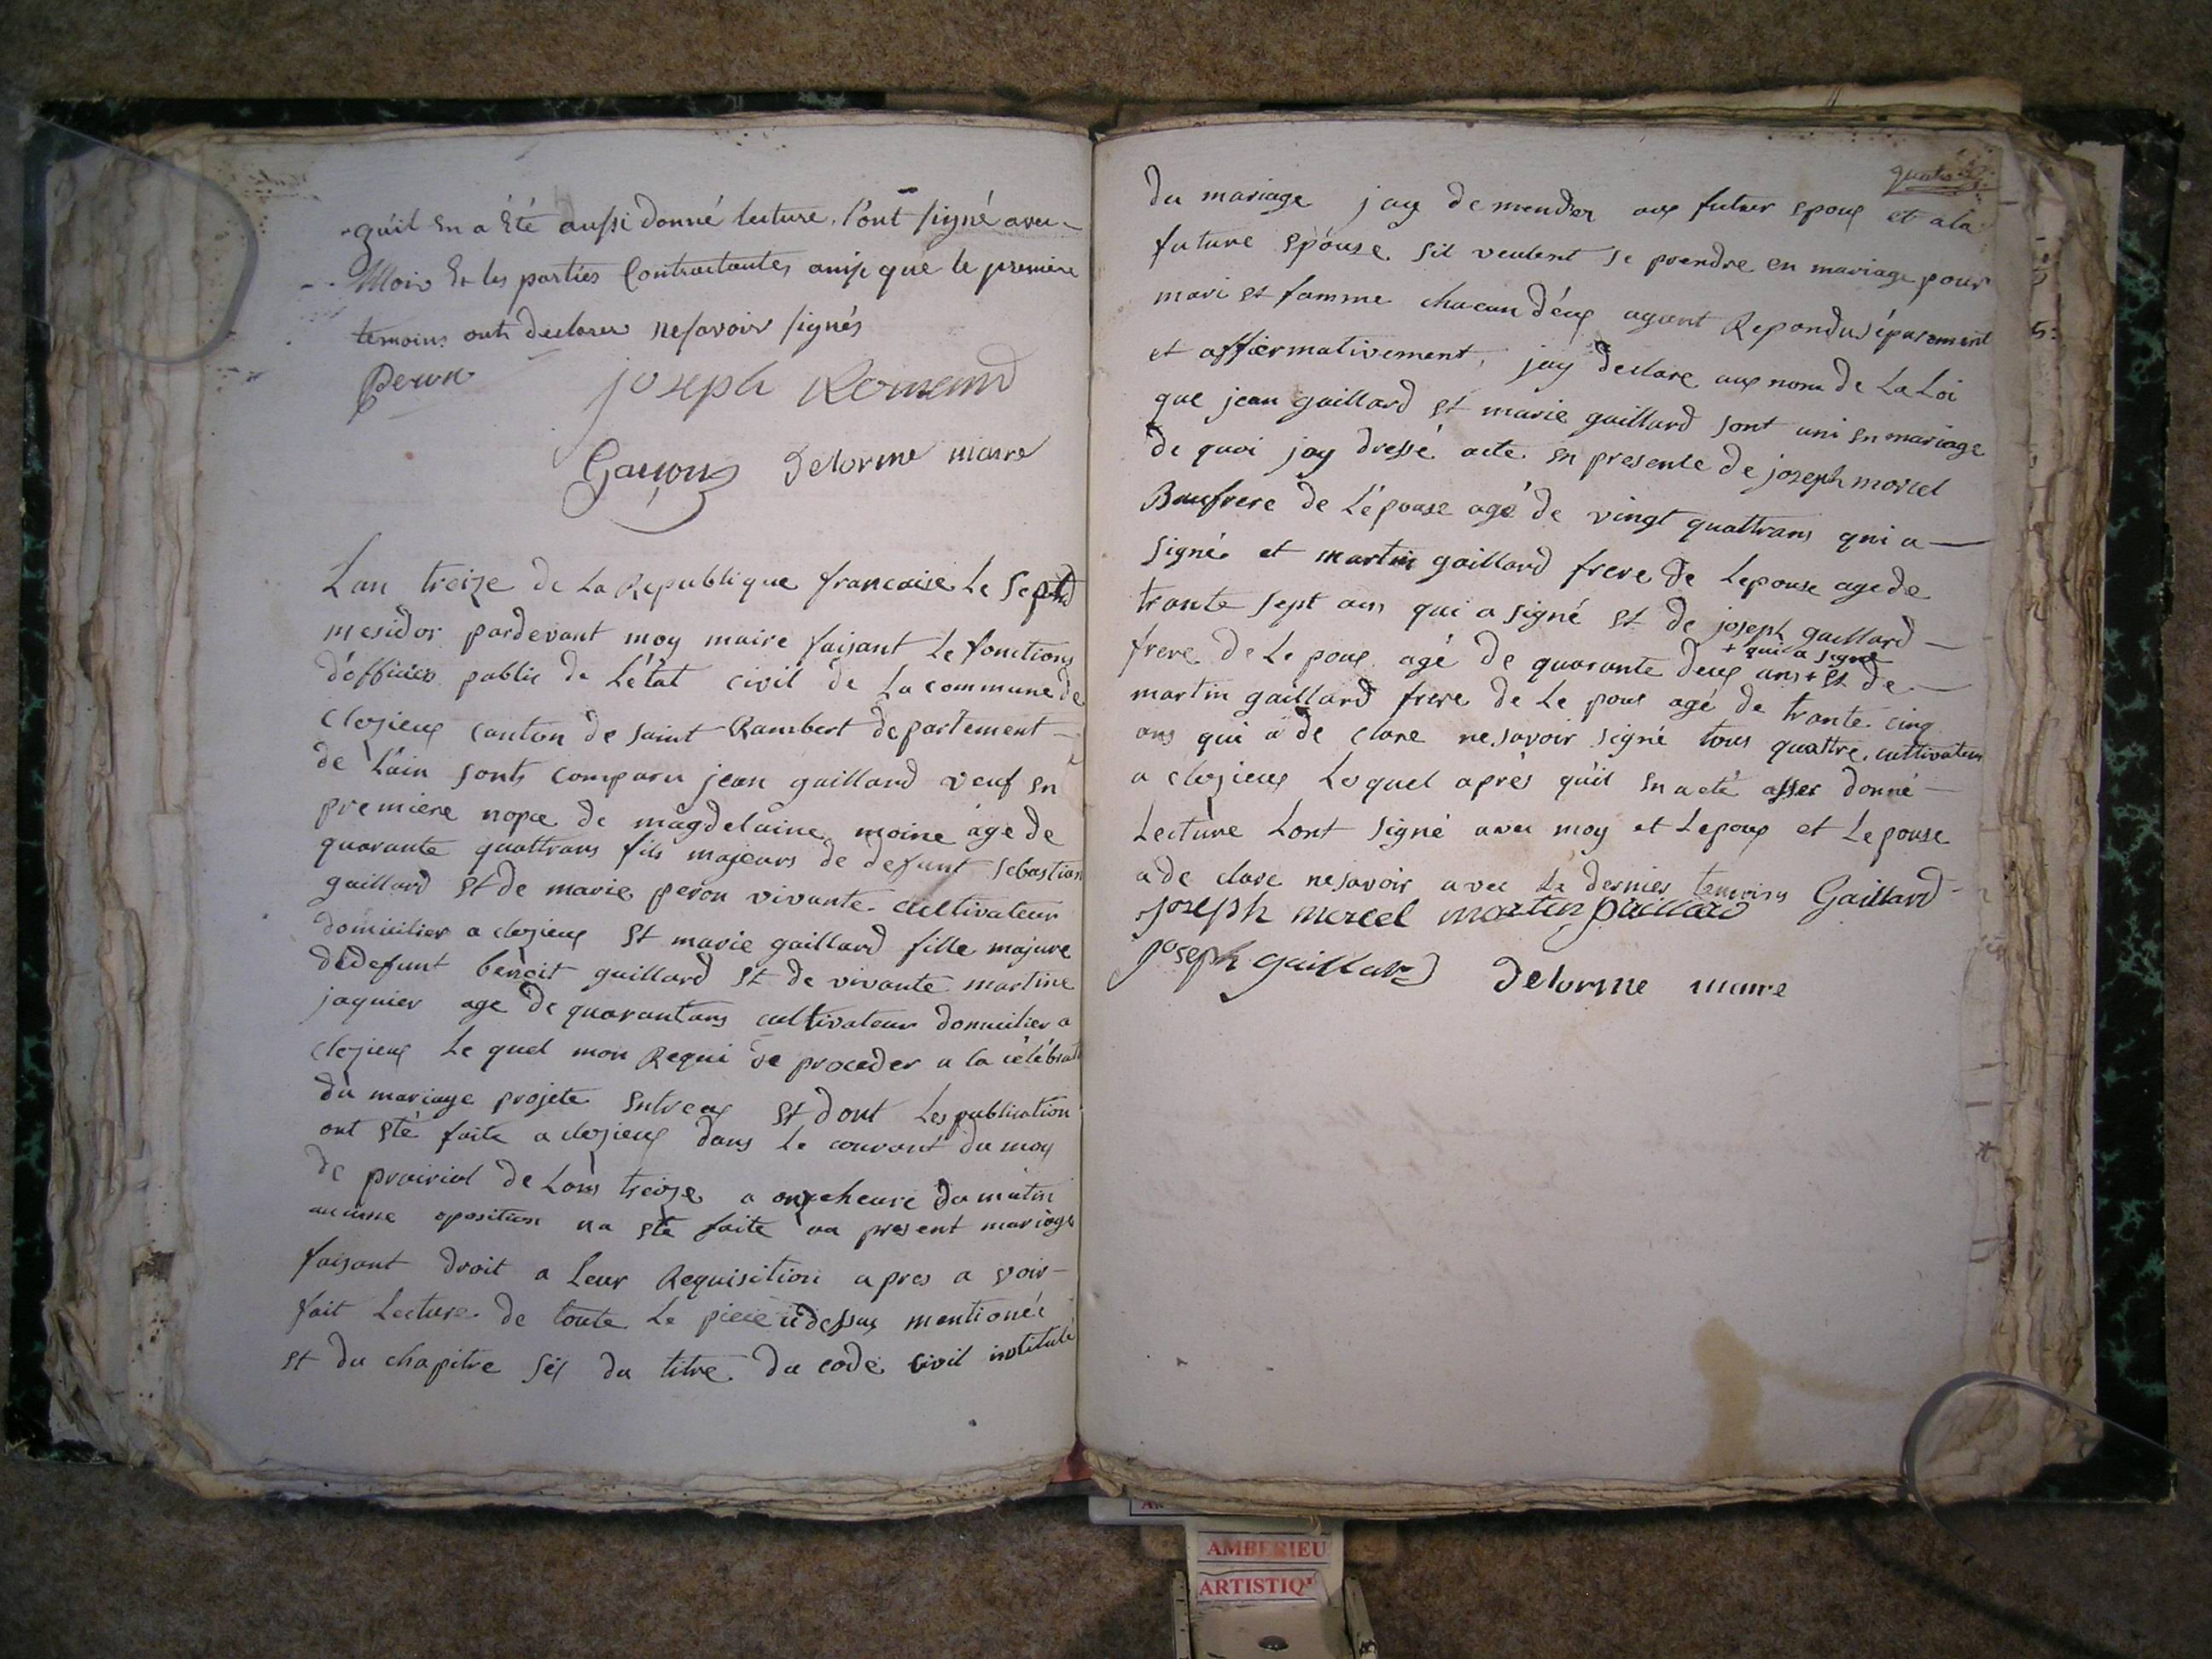 qu'il en a été aussi donné lecture, l'ont signé avec
Moi et les parties Contractantes ainsi que le premiere
temoins ont declarer ne savoir signés
Peron Joseph Romand
delorme maire
Lan treize de La Republique francaise Le Sept
mesidor pardevant moy maire faisant Le fonctions
d'officier public de L'état civil de La commune de
clezieux canton de saint Rambert departement
de L'ain sonts comparu jean gaillard veuf en
premiere nopce de magdelaine moine age de
quarante quattrans fils majeurs de defunt sebastian
gaillard et de marie peron vivante cultivateur
domicilier a clezieux et marie gaillard fille majure
de defunt benoit gaillard et de vivante martine
jaquier age de quarantans cultivateur domicilier a
clezieux Le quel mon Requi de proceder a la célébrati
du mariage projete entreux et dont Les publication
ont été faite a clezieux dans Le courant du moy
de prairial de Lans treize a onze heure du matin
aucune oposition na ete faite au present mariage
faisant droit a Leur Requisition apres a voir
fait Lecture de toute Le piece cidessus mentionée
et du chapitre six du titre du code civil intitulé
du mariage jay demender aux futur epoux et a la
future epouse sil veulent se prendre en mariage pour
mari et famme chacun d'eux ayant Repondu séparement
et affiermativement, jay declare aux nom de La Loi
que jean gaillard et marie gaillard sont uni en mariage
de quoi jay dressé acte en presente de joseph morcel
Baufrere de L'épouse agé de vingt quattrans qui a
signé et martin gaillard frere de Lepouse age de
trante sept ans qui a signé et de joseph gaillard
+ qui a signé
frere de Le poux agé de quarante deux ans + et de
martin gaillard frere de Le poux agé de trante cinq
ans qui a de clare ne savoir signé tous quattre cultivateur
a clezieux Lequel après qu'il en a eté asser donné
Lecture Lont signé avec moy et Lepoux et Lepouse
a de clare ne savoir avec Le dernier temoins Gaillard
joseph morcel martin gaillard
joseph gaillard delorme maire
AMBERIEU
ARTISTIQ